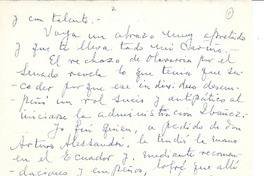 2
y con talento.-
Vaya un abrazo muy apretado
y que te lleva todo mi cariño.-
El rechazo de Olavarría por el
Senado revela lo que tenía que su-
ceder por que ese individuo desem-
peñó un rol sucio y antipático al
iniciarse la administración Ibáñez.
Yo fui quien, a pedido de don
Arturo Alessandri, le tendí la mano
en el Ecuador y mediante recomen-
daciones y empeños, logré que allí